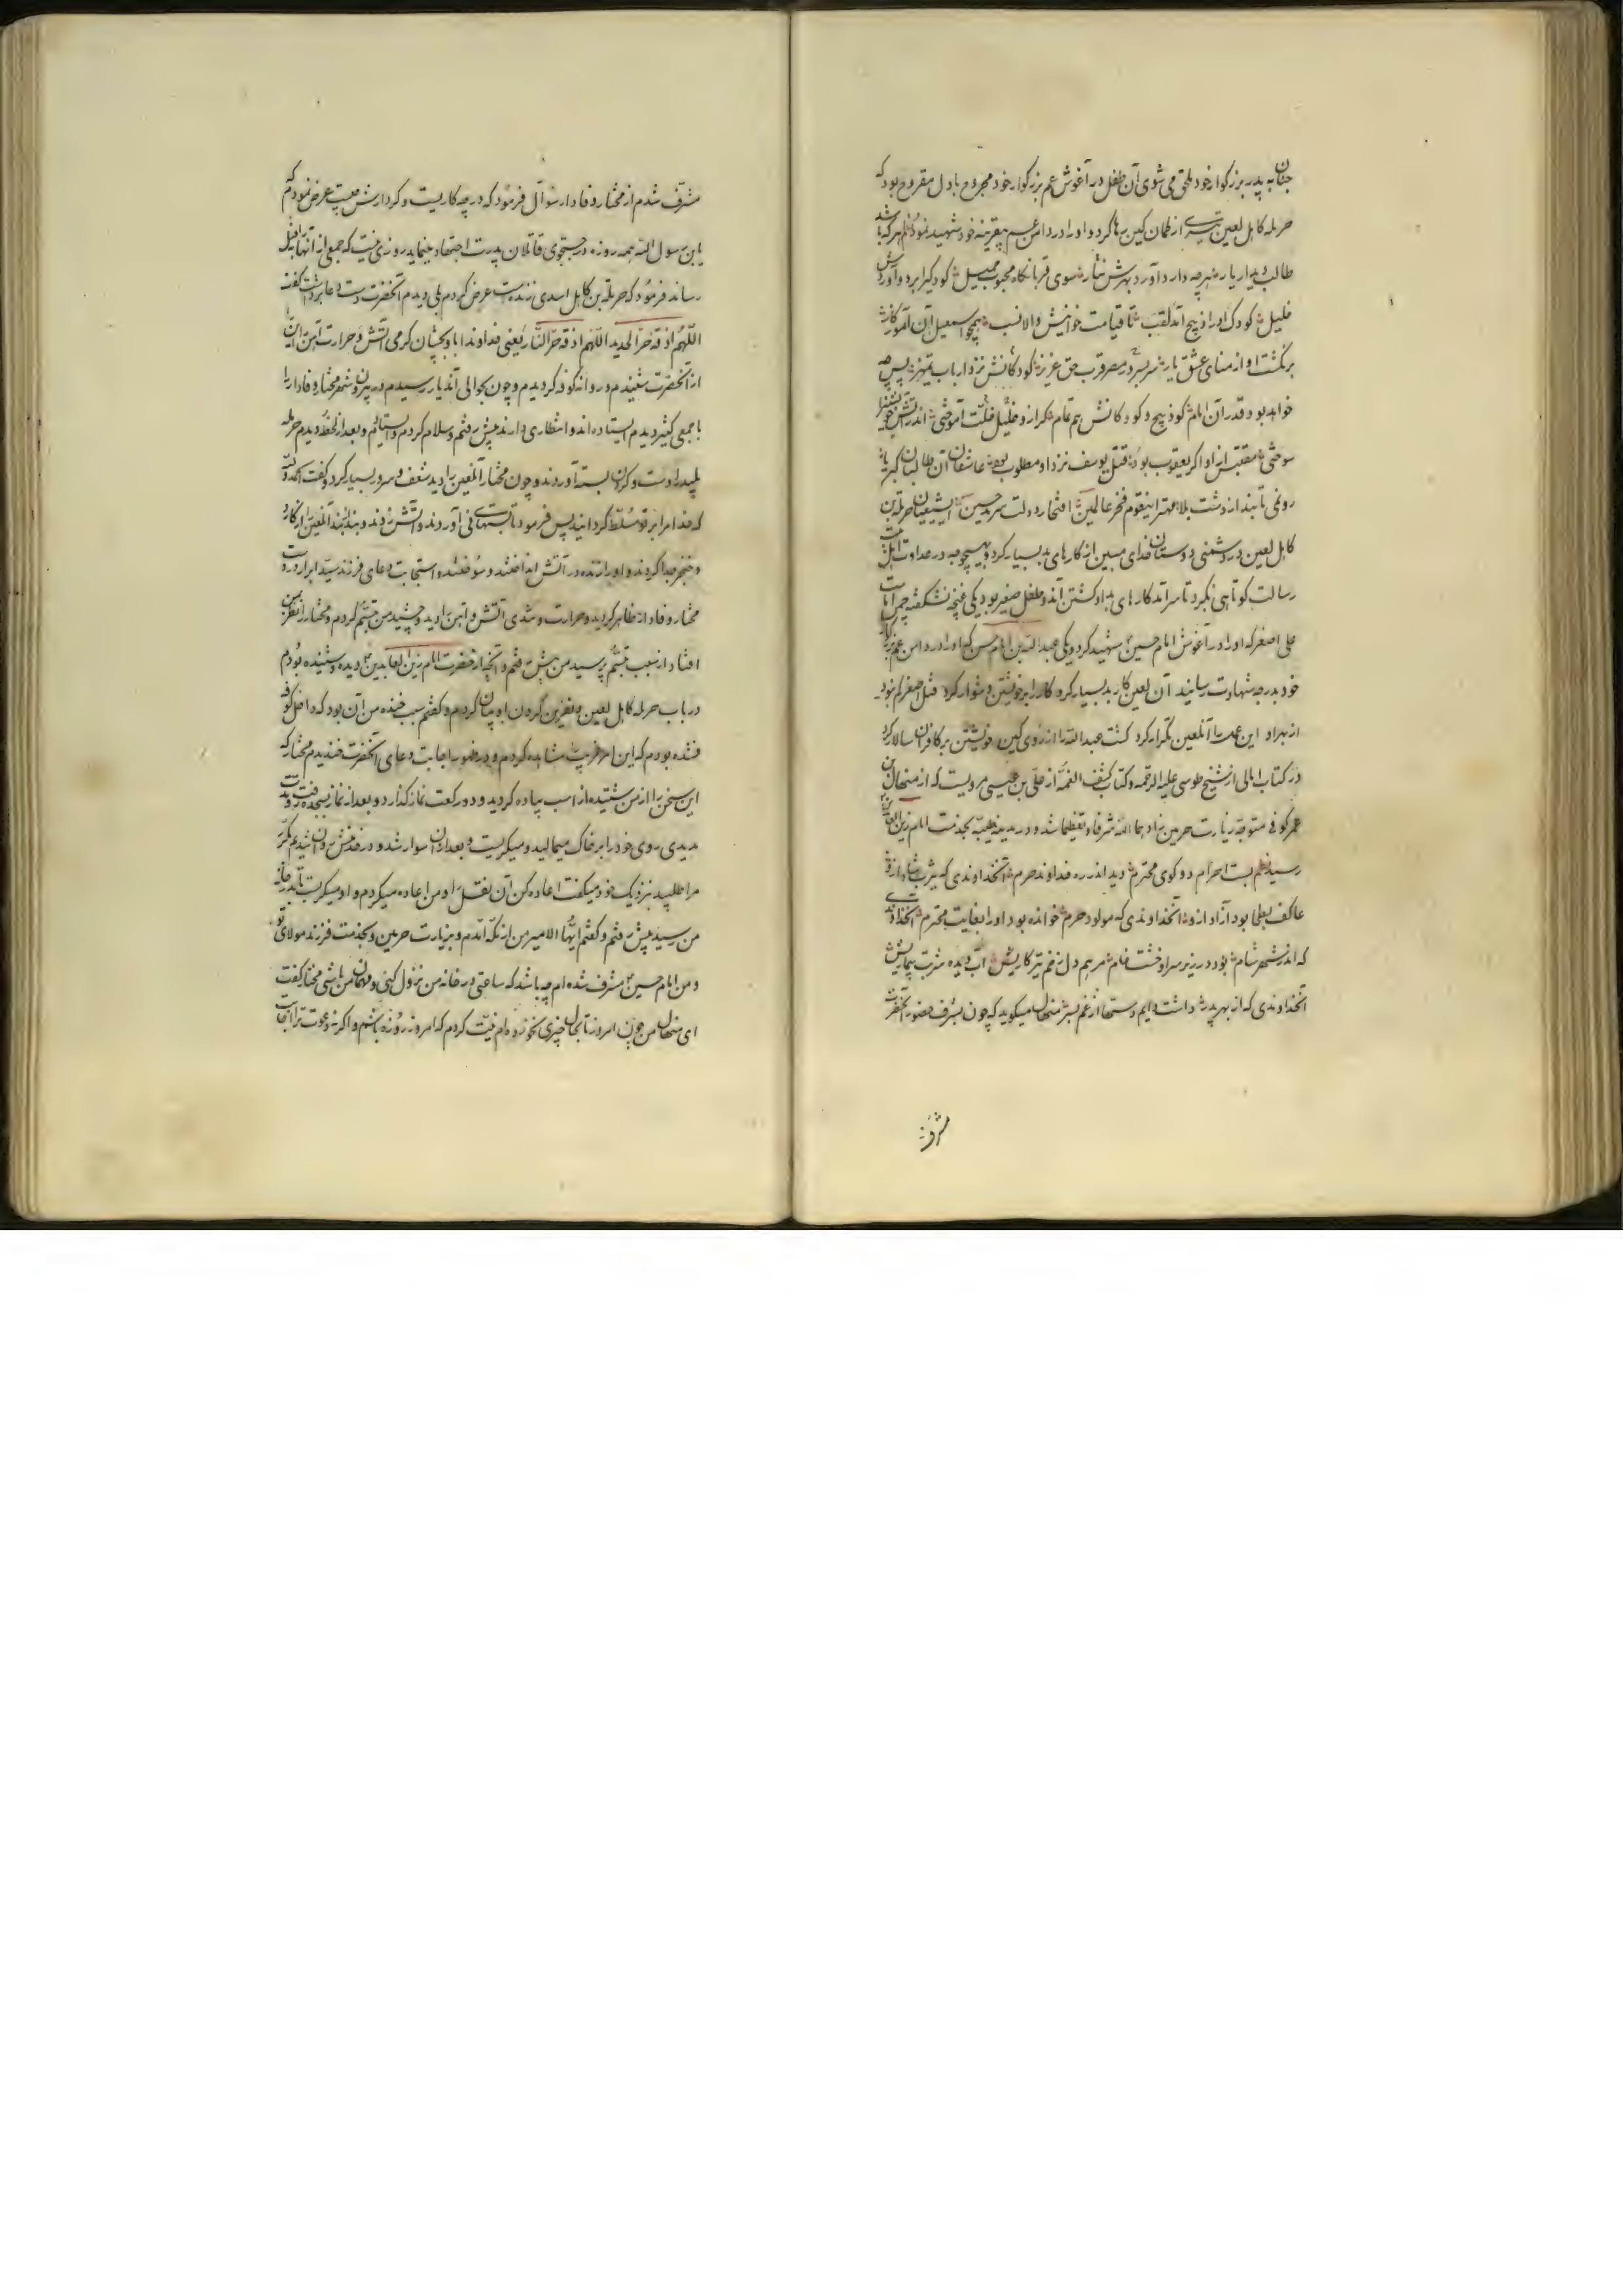 جنان به پدر بزرگوار خود ملحق می شوی آن طفل در آغوش عم بزرگوار خود مجروح با دل مقروح بود که
حرمله کابل لعین تیری از کمان کین رها کرد و او را در دامن عم خود شهید نمود نظم هر که باشد
طالب دیدار یار هر چه دارد آورد بهرش نثار سوی قربانگاه محبوب جمیل کودکی را برد و آوردش
خلیل کودک او را ذبیح آمد لقب تا قیامت خوانیش والانسب همچو اسمعیل آن
برنگشت او از منای عشق یار سر ببرد در مصر قرب حق عزیز کودکانش نزد ارباب تمیز پس چه
خواهد بود قدر آن امام کو ذبیح و کودکانش هم تمام از و خلیل خلت آموختی اندر آتش
سوختی مقتبس از او اگر یعقوب بود قتل یوسف نزد او مطلوب بود عاشقان آن طالبان کبریا
رو نمی تابند از دشت بلا مهتر اینقوم فخر عالمین افتخار دولت سرمد حسین ایشیعیان حرملة بن
کابل لعین در دشمنی دوستان خدای مبین از کارهای بد بسیار کرد و بهیچوجه در عداوت اهل بیت
رسالت کوتاهی نکرد تا سرآمد کارهای بد او کشتن آندو طفل صغیر بود یکی غنچه نشکفته چمن امامت
علی اصغر که او را در آغوش امام حسین شهید کرد و یکی عبدالله بن امام حسن که او را در دامن عم بزرگوار
خود بدرجه شهادت رسانید آن لعین کار بد بسیار کرد کار را بر خویشتن دشوار کرد قتل اصغر کم نبود
از بهر او این عمل را آنلعین تکرار کرد کشت عبدالله را از روی کین خویشتن بر کافران سالار کرد
در کتاب امالی از شیخ طوسی علیه الرحمه و کتاب کشف الغمه از علی بن عیسی مرویست که از منهال بن
عمر کوفی متوجه زیارت حرمین زادهما الله شرفا و تعظیما شد و در مدینه طیبه بخدمت امام زین العابدین
رسید نظم بست احرام دو کوی محترم دید اندر ره خداوند حرم آنخداوندی که یثرب شاد ازو
عاکف بطحا بود آزاد ازو آنخداوندی که مولود حرم خوانده بود او را بغایت محترم آنخداوندی
که اندر شهر شام بود در زیر سر او خشت خام مرهم دل زخم تیر کاریش آب دیده شربت بیماریش
آنخداوندی که از بهر پدر داشت دایم دستها از غم بسر منهال میگوید که چون بشرف حضور آنحضرت
مشرف
مشرف شدم از مختار وفادار سؤال فرمود که در چه کاریست و کردارش چیست عرض نمودم که
یابن رسول الله همه روزه در جستجوی قاتلان پدرت اجتهاد مینماید روزی نیست که جمعی از آنها را بقتل
رساند فرمود که حرملة بن کابل اسدی زنده است عرض کردم بلی دیدم آنحضرت دست بدعا برداشت گفت
اللهم اذقه حر الحدید اللهم اذقه حر النار یعنی خداوندا باو بچشان گرمی آتش و حرارت آهن این را
از آنحضرت شنیدم و روانه کوفه گردیدم و چون بحوالی آندیار رسیدم در بیرون شهر مختار وفادار را
با جمعی کثیر دیدم ایستاده اند و انتظاری دارند پیش رفتم و سلام کردم و ایستادم و بعد از لحظه دیدم حرمله
پلید را دست و گردن بسته آوردند و چون مختار آنلعین را دید شعف و سرور بسیار کرد و گفت الحمدلله
که خدا مرا بر تو مسلط گردانید پس فرمود تا پشتهای نی آوردند و آتش زدند و بند بند آنلعین را از کارد
و خنجر جدا کردند و او را زنده در آتش انداختند و سوختند و استجابت دعای فرزند سید ابرار در دست
مختار وفادار ظاهر گردید و حرارت و تندی آتش و آهن را دید و چشید من تبسم کردم و مختار را نظر بمن
افتاد از سبب تبسم پرسید من پیش رفتم و آنچه از حضرت امام زین العابدین دیده و شنیده بودم
در باب حرمله کابل لعین و نفرین کردن او بیان کردم و گفتم سبب خنده من آن بود که داخل کوفه
نشده بودم که این امر غریب مشاهده کردم و در ظهور اجابت دعای آنحضرت خندیدم مختار که
این سخن را از من شنید از اسب پیاده گردید و دو رکعت نماز گذارد و بعد از نماز بسجده رفت و مدت
مدیدی روی خود را بر خاک میمالید و میگریست و بعد از آن سوار شد و در خدمتش روان شدیم مکرر
مرا طلبید نزدیک خود میگفت اعاده کن آن نقل را و من اعاده میکردم و او میگریست تا بدر خانه
من رسید پیش رفتم و گفتم ایها الامیر من از مکه آمدم و بزیارت حرمین و بخدمت فرزند مولای تو
و من امام حسین مشرف شده ام چه باشد که ساعتی در خانه من نزول کنی و مهمان من باشی مختار گفت
ای منهال من چون امروز تا بحال چیزی نخورده ام نیت کردم که امروز روزه باشم و اگر نه دعوت ترا اجابت